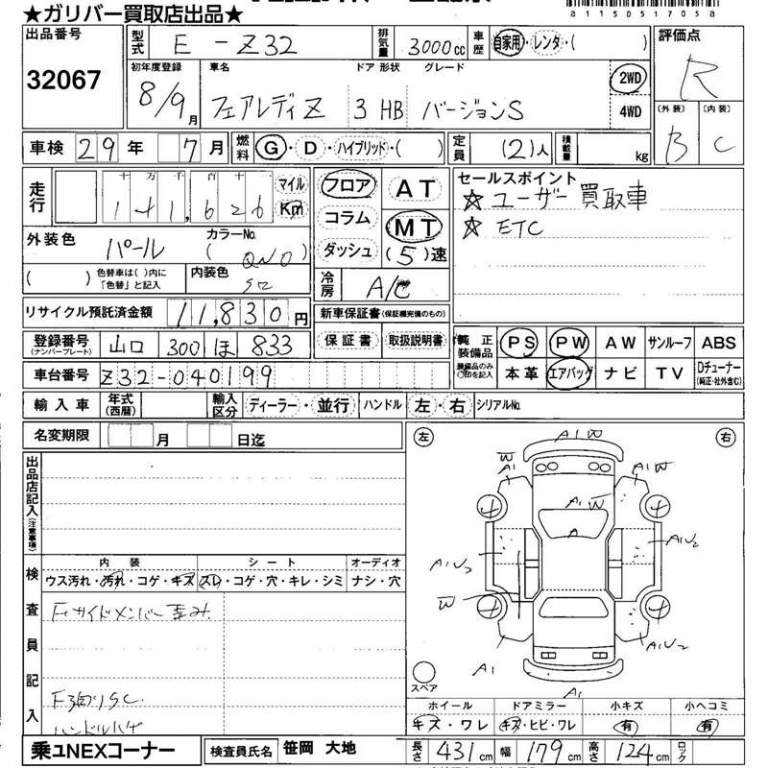 ★ガリバー買取店出品★
a 1 1 5 0 5 1 7 0 5 a
出品番号 32067
型式 E-Z32 排気量 3000cc 車歴 自家用・レンタ・( )
評価点 R
初年度登録 8/9月 車名 フェアレディZ ドア 形状 3 HB グレード バージョンS 2WD 4WD
(外装) B (内装) C
車検 29年 7月 燃料 G・D・ハイブリッド・( ) 定員 (2)人 積載量 kg
走行 十万千百十 141,626 マイル Km
フロア コラム ダッシュ AT MT (5)速
セールスポイント
☆ユーザー買取車
☆ETC
外装色 パール カラーNo. (QN0)
( ) 色替車は( )内に「色替」と記入 内装色
冷房 A/C
リサイクル預託済金額 11,830円
新車保証書(保証継続後のもの)
保証書 取扱説明書
登録番号 (ナンバープレート) 山口 300 ほ 833
純正装備品 装備品のみ○印を記入 PS PW AW サンルーフ ABS
本革 エアバッグ ナビ TV Dチューナー (純正・社外含む)
車台番号 Z32-040199
輸入車 年式(西暦) 輸入区分 ディーラー・並行 ハンドル 左・右 シリアルNo.
名変期限 月 日迄
左 右
A1 W
W A1
A1 W
A1 W
A
A1U3
A1U2
W
A1U2
A1
A1
スペア
出品店記入(注意事項)
検査員記入
内装 シート オーディオ
ウス汚れ・汚れ・コゲ・キズ スレ・コゲ・穴・キレ・シミ ナシ・穴
Frサイドメンバー歪み
ハンドルハゲ
ホイール ドアミラー 小キズ 小ヘコミ
キズ・ワレ キズ・ヒビ・ワレ 有 有
乗ユNEXコーナー 検査員氏名 笹岡 大地 長さ 431cm 幅 179cm 高さ 124cm ロック